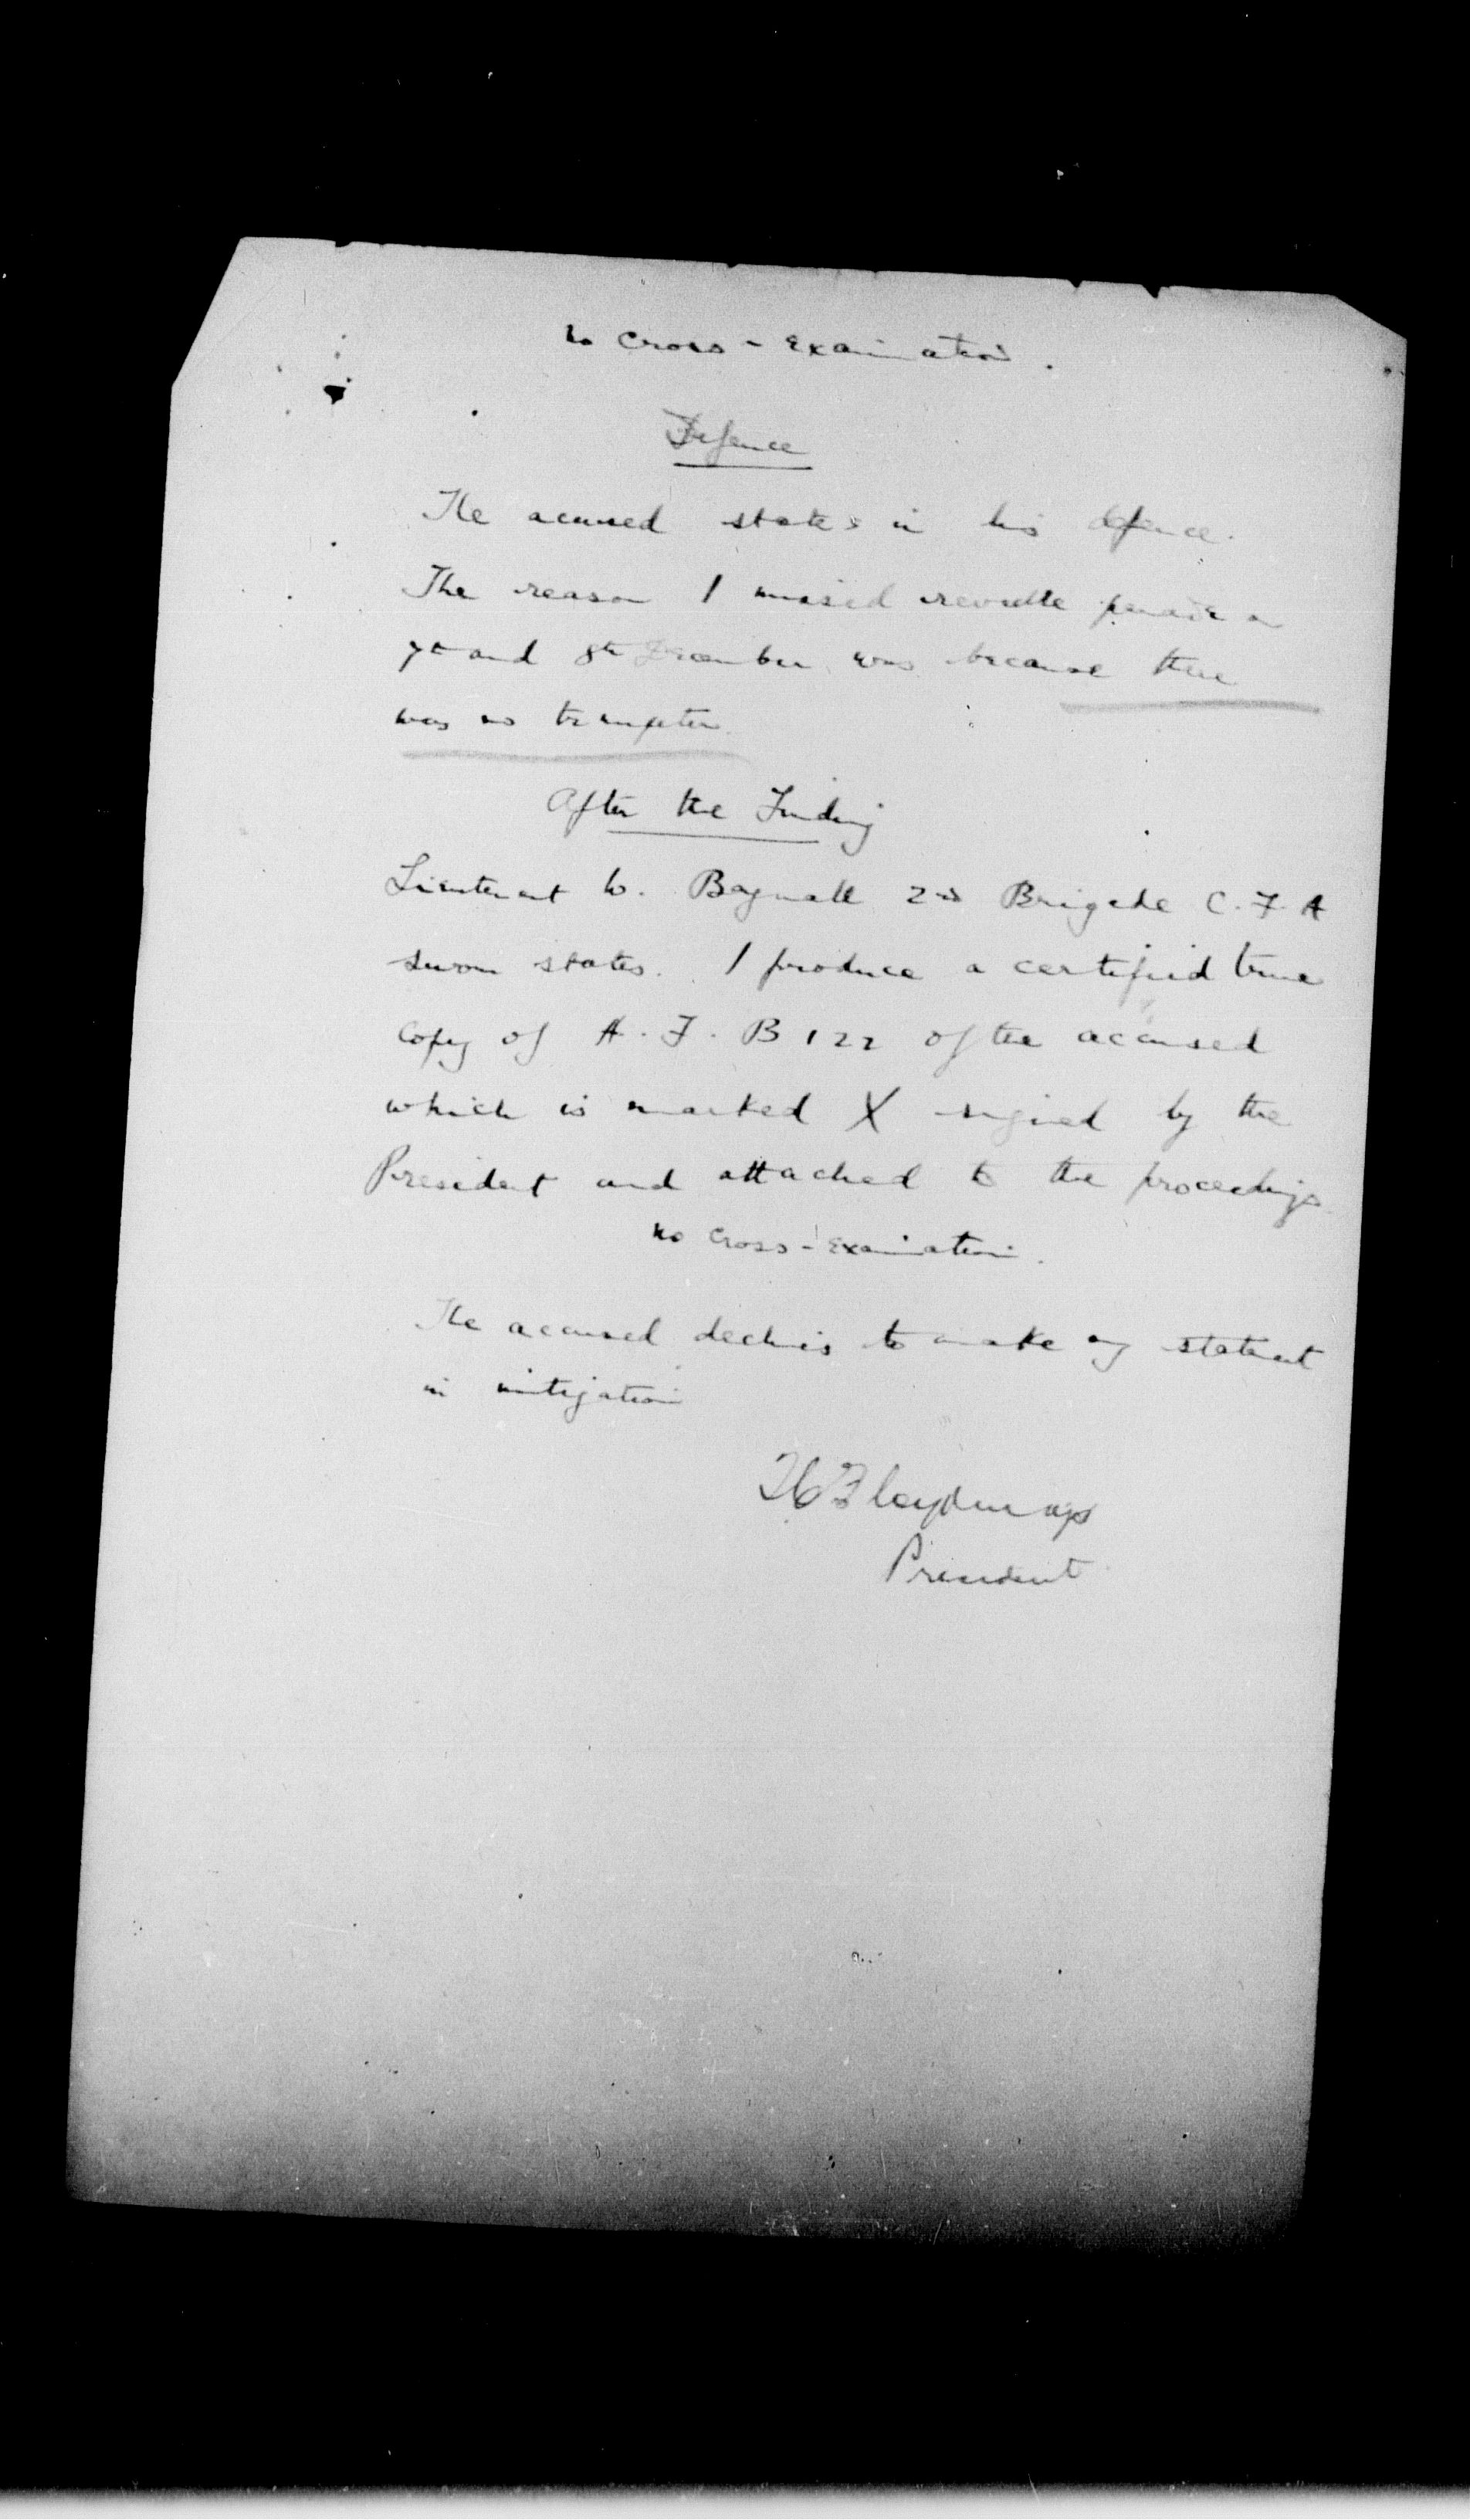 No Cross-Examination.
Defence
The accused states in his defence.
The reason I missed reveille parade on
7th and 8th December was because there
was no trumpeter.
After the Finding
Lieutenant W. Bagnall 2nd Brigade C.F.A
sworn states. I produce a certified true
copy of A.F. B 122 of the accused
which is marked X signed by the
President and attached to the proceedings
No Cross-Examination.
The accused declines to make any statement
in mitigation
President